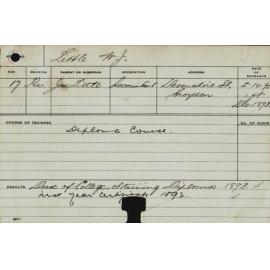 Little W. J.
AGE RELIGION PARENT OR GUARDIAN OCCUPATION ADDRESS DATE OF ENTRANCE
17 Pres. Jas Little Accountant Devonshire St, 5.10.9
Croydon
Dec 1898
COURSE OF TRAINING NO. OF ROOM
Diploma Course.
RESULTS Dux of College, obtaining Diploma 1898.
First Year Certificate 1893.